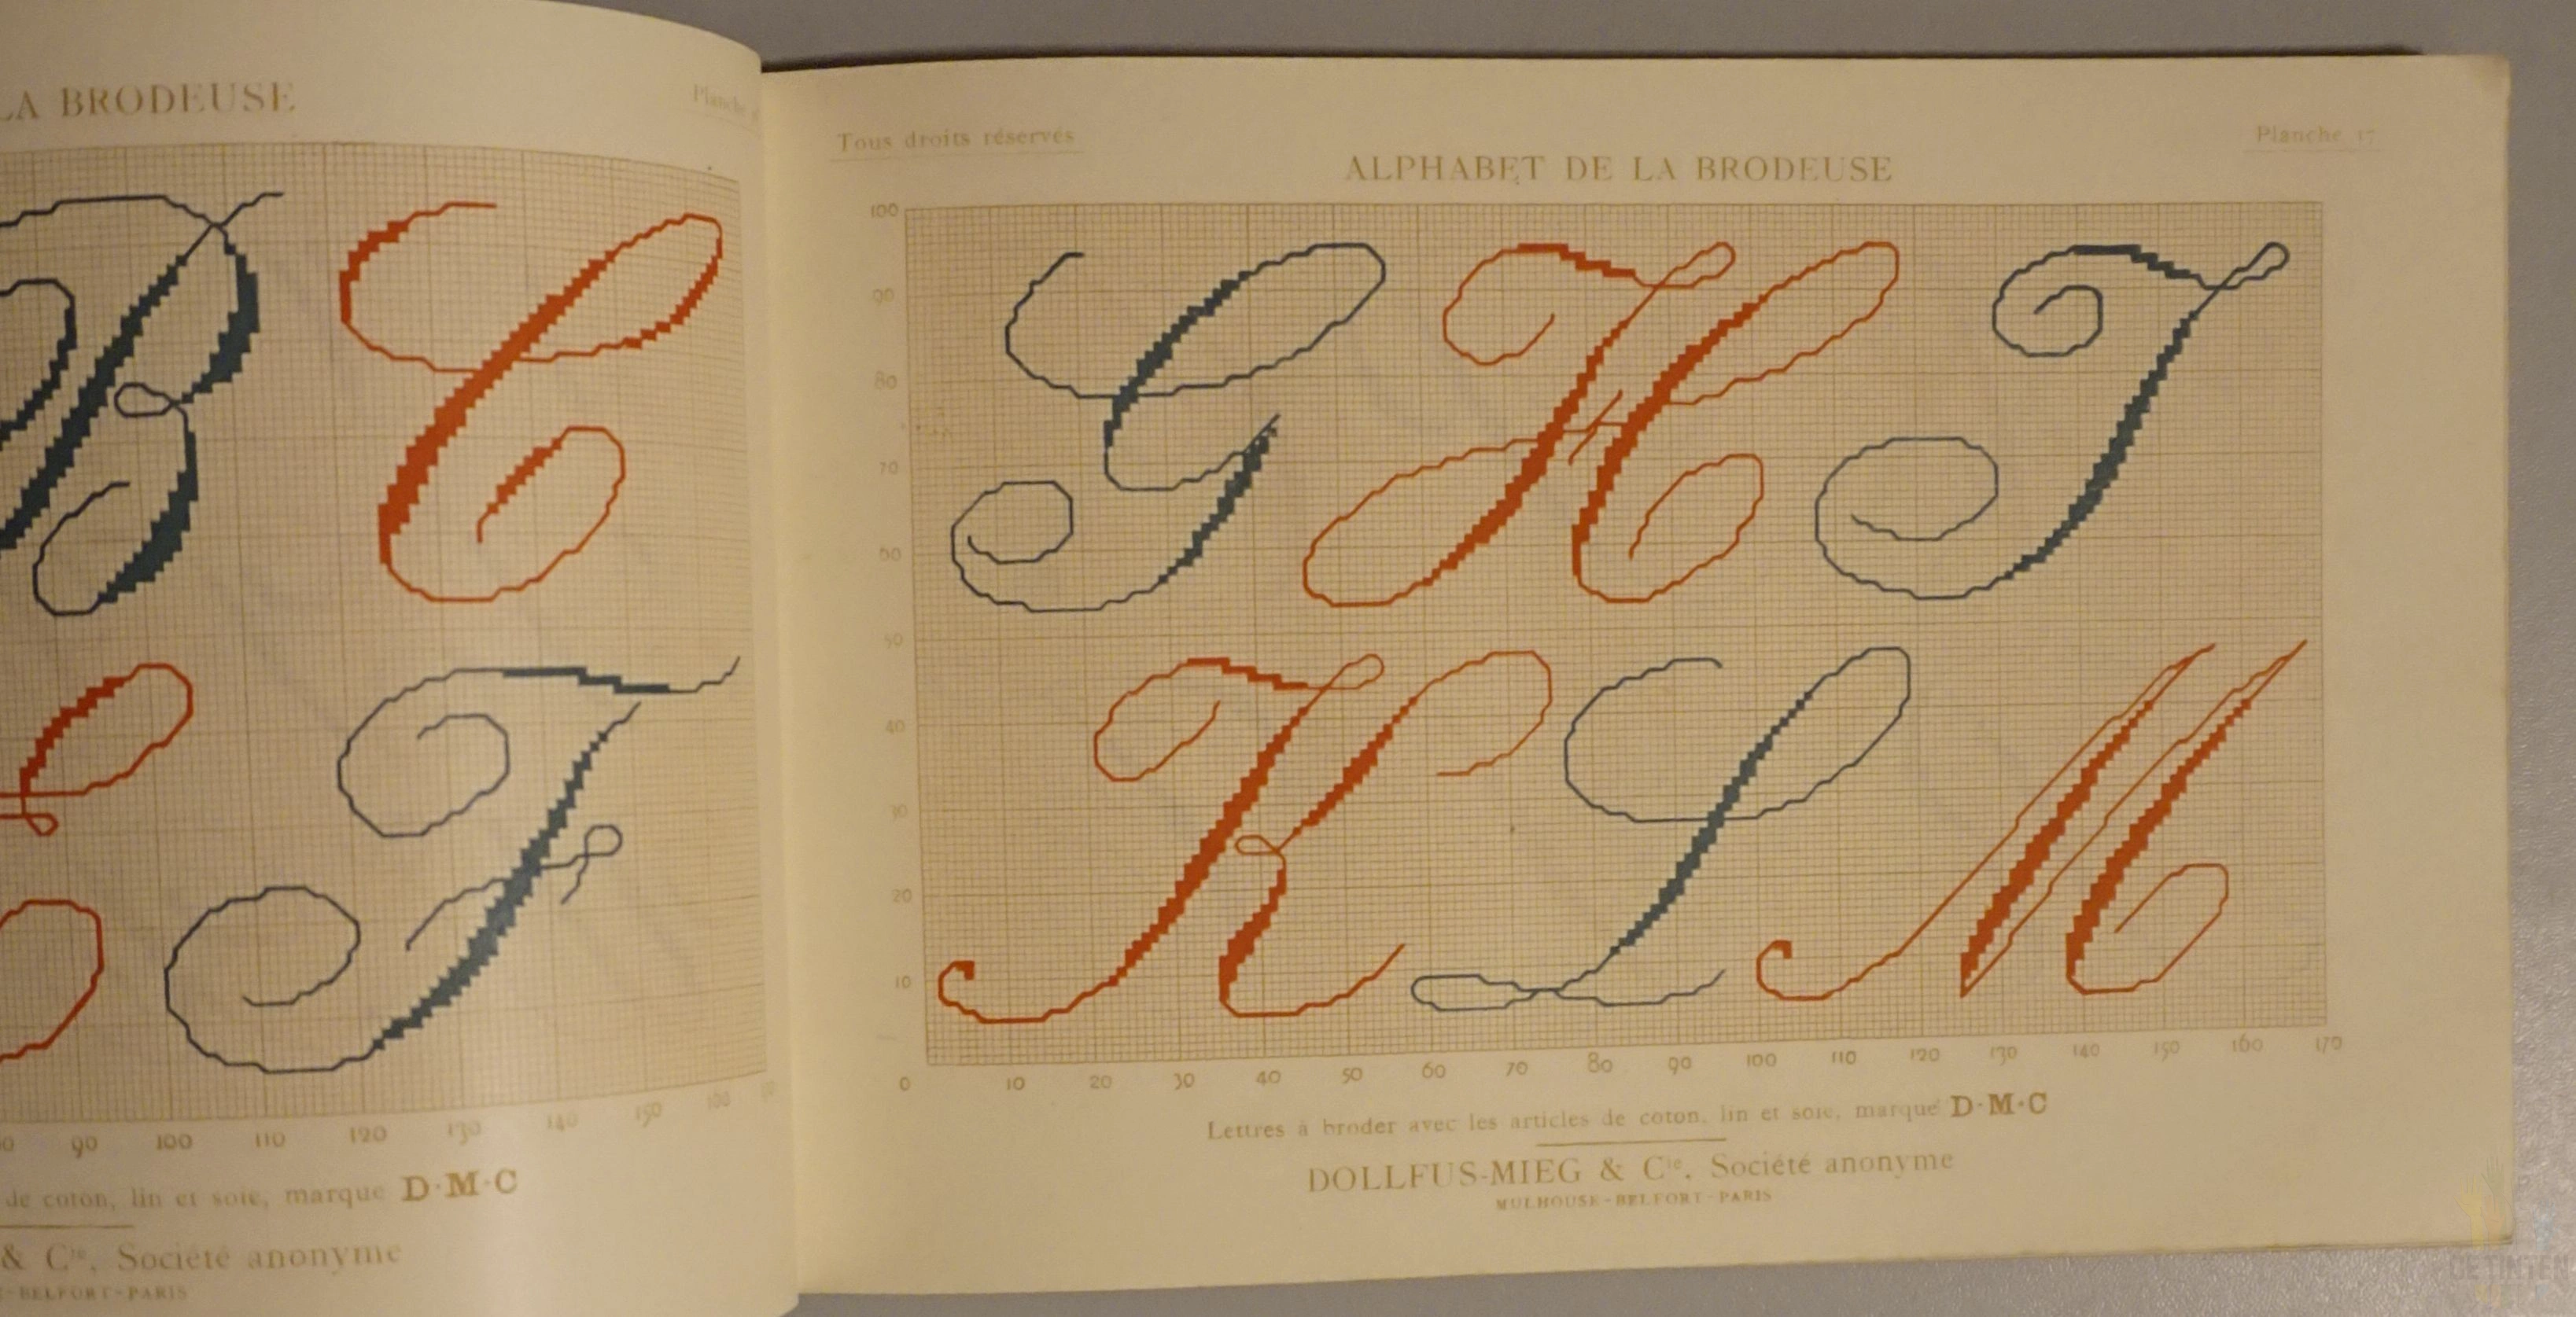 LA BRODEUSE
Planche
B C
F
90 100 110 120 130 140 150 160
de coton, lin et soie, marque D·M·C
& Cie, Société anonyme
-BELFORT-PARIS
Tous droits réservés
Planche 17
ALPHABET DE LA BRODEUSE
100
90
80
70
60
50
40
30
20
10
G H I
K L M
0 10 20 30 40 50 60 70 80 90 100 110 120 130 140 150 160 170
Lettres à broder avec les articles de coton, lin et soie, marque D·M·C
DOLLFUS-MIEG & Cie, Société anonyme
MULHOUSE-BELFORT-PARIS